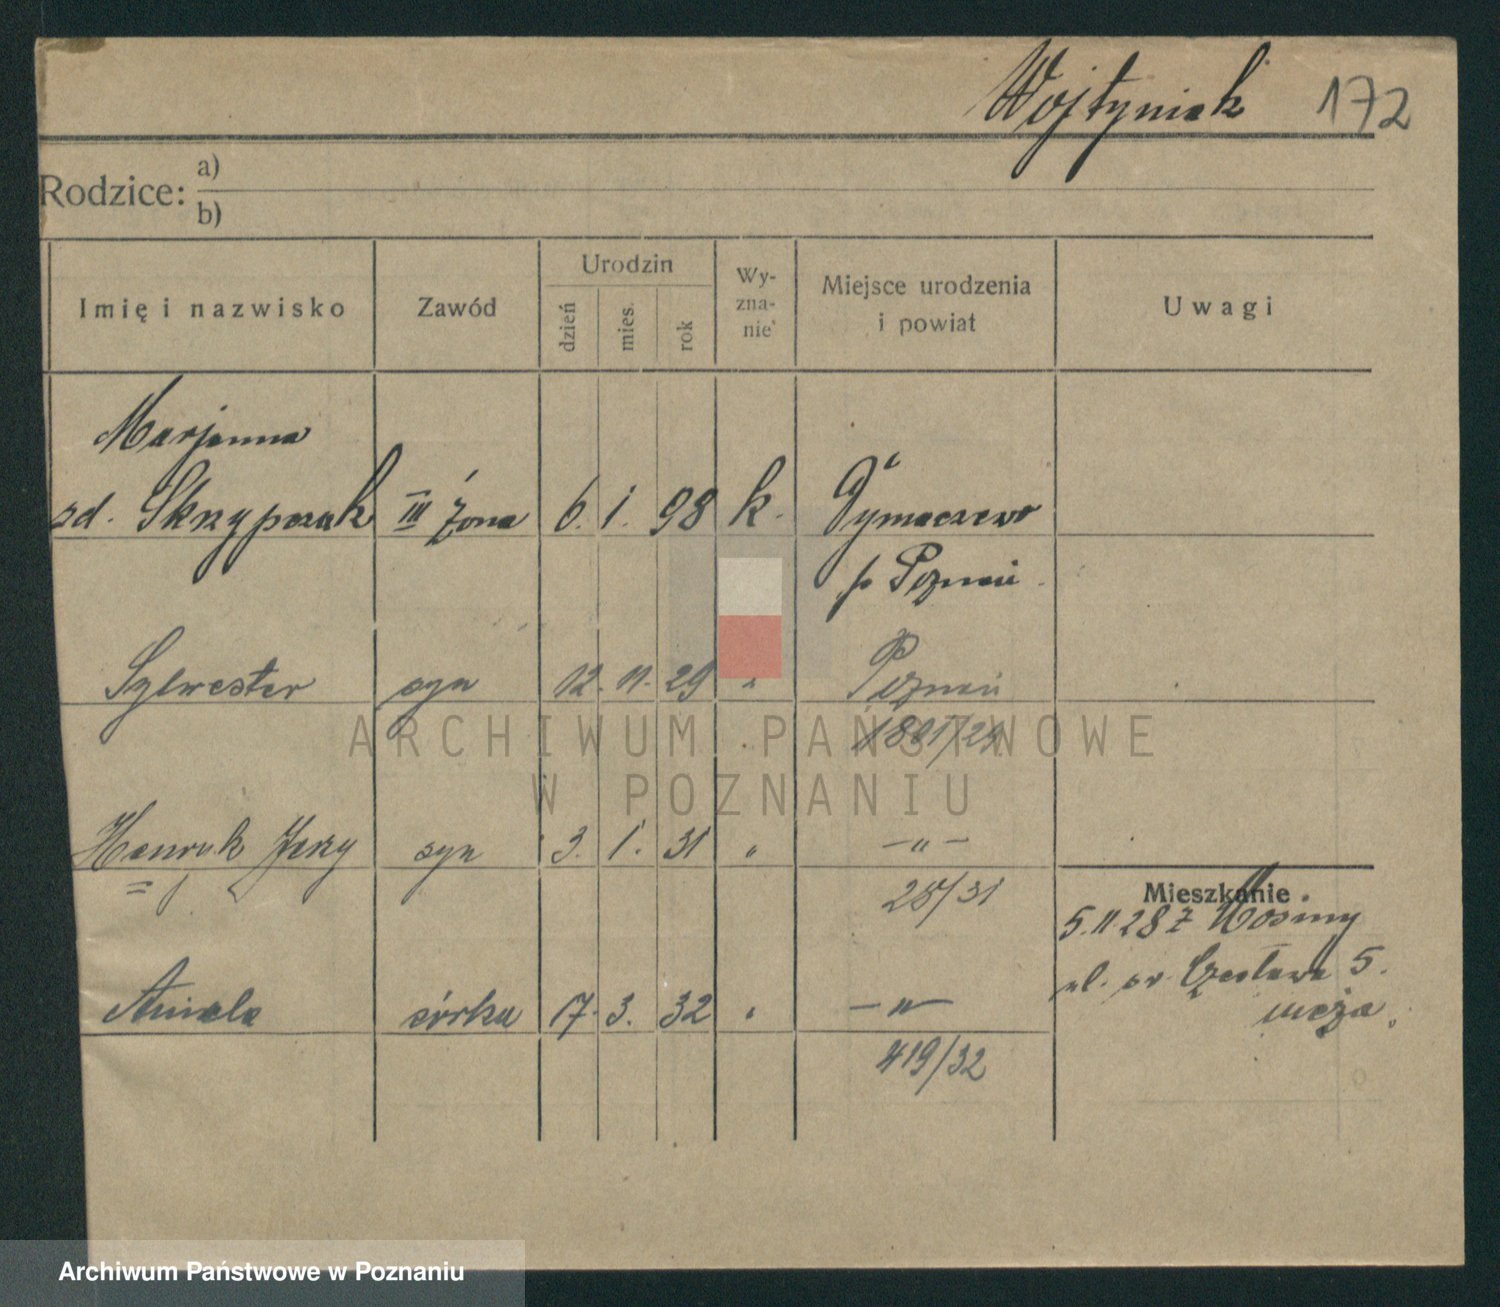 Wojtyniak 172
Rodzice: a)
b)
Imię i nazwisko Zawód Urodzin dzień mies. rok Wy-zna-nie Miejsce urodzenia i powiat Uwagi
Marjanna
zd. Skrzypczak III żona 6. 1. 98 k. Tymaczewo
p. Poznań
Sylwester syn 12. 11. 29 " Poznań
1801/29
Henryk Jerzy syn 3. 1. 31 " —"—
28/31
Mieszkanie
5.11 28 z Kosiny
ul. św. Czesława 5.
męża.
Aniela córka 17. 3. 32 " —"—
419/32
ARCHIWUM PAŃSTWOWE
W POZNANIU
Archiwum Państwowe w Poznaniu